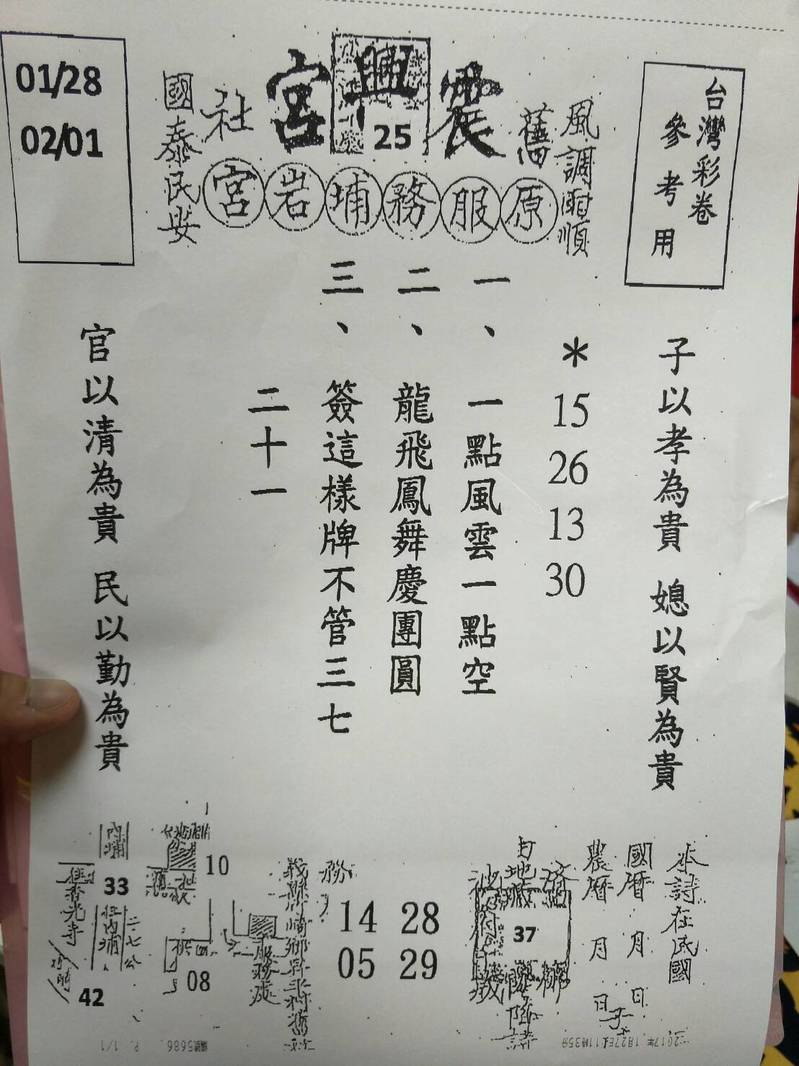 台灣彩卷
參考用
風調雨順
舊
震興宮
25
社
國泰民安
原服務埔岩宮
01/28
02/01
子以孝為貴 媳以賢為貴
*
15
26
13
30
一、一點風雲一點空
二、龍飛鳳舞慶團圓
三、簽這樣牌不管三七
二十一
官以清為貴 民以勤為貴
國曆 月 日
農曆 月 日
37
14 28
05 29
10
08
內埔
33
往內埔
42